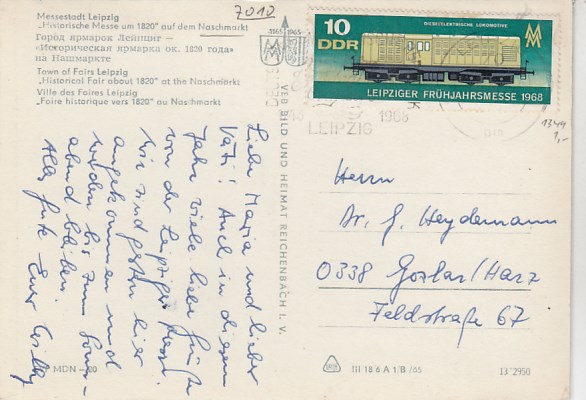 Messestadt Leipzig
„Historische Messe um 1820" auf dem Naschmarkt
Город ярмарок Лейпциг -
«Историческая ярмарка ок. 1820 года»
на Нашмаркте
Town of Fairs Leipzig
"Historical Fair about 1820" at the Naschmarkt
Ville des Foires Leipzig
„Foire historique vers 1820" au Naschmarkt
7010
1165 1965
VEB BILD UND HEIMAT REICHENBACH I. V.
Liebe Maria und lieber
Vati! Auch in diesem
Jahr viele liebe Grüße
von der Leipziger Messe.
Wir sind gestern hier
angekommen und
werden bis zum Sonn-
abend bleiben.
Alles Gute Euer Willy
MDN -,20
10
DDR
DIESELELEKTRISCHE LOKOMOTIVE
MM
LEIPZIGER FRÜHJAHRSMESSE 1968
LEIPZIG
1968
1349
1,-
Herrn
Dr. J. Heydemann
0338 Goslar/Harz
Feldstraße 67
III 18 6 A 1/B /65
13 2950